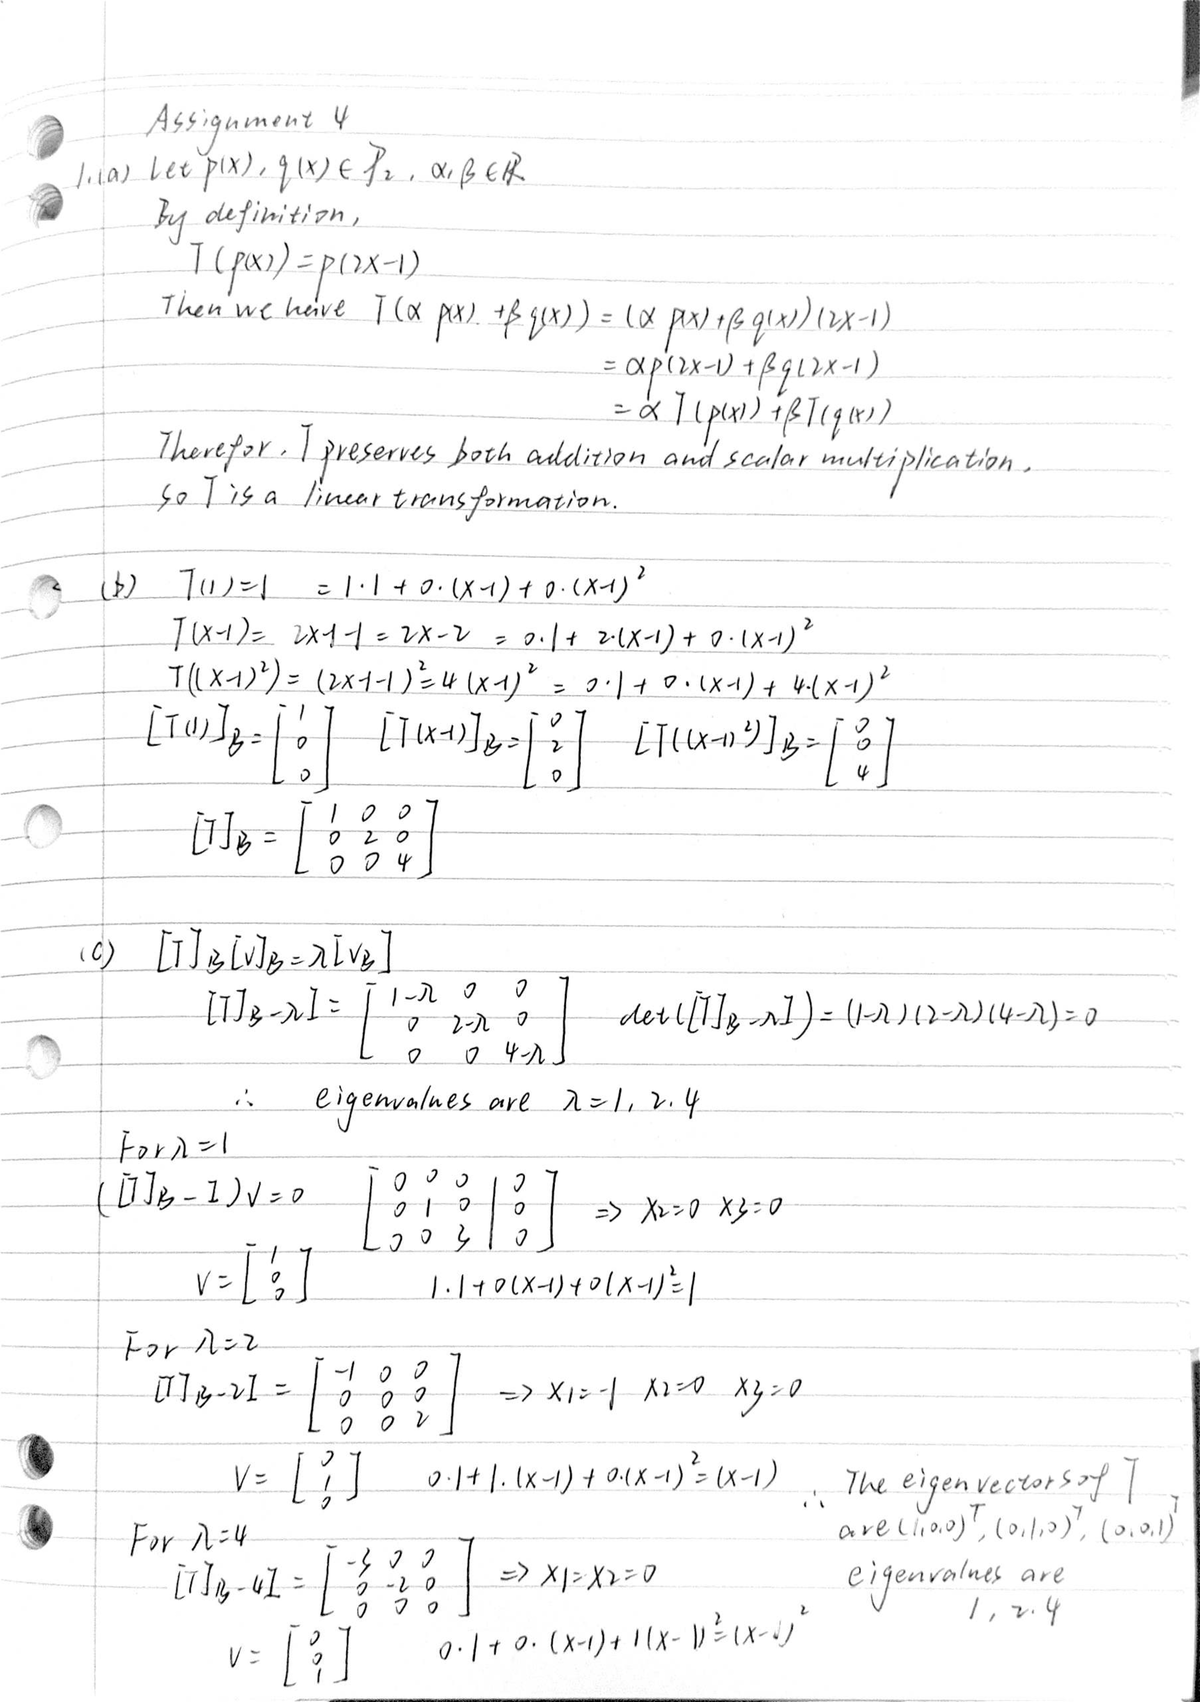 Assignment 4
1.(a) Let p(x), q(x) ∈ P₂, α, β ∈ ℝ
By definition,
T(p(x)) = p(2x-1)
Then we have T(α p(x) + β q(x)) = (α p(x) + β q(x))(2x-1)
= αp(2x-1) + βq(2x-1)
= α T(p(x)) + βT(q(x))
Therefor. T preserves both addition and scalar multiplication.
so T is a linear transformation.
(b) T(1)=1 = 1·1 + 0·(x-1) + 0·(x-1)²
T(x-1) = 2x-1-1 = 2x-2 = 0·1 + 2·(x-1) + 0·(x-1)²
T((x-1)²) = (2x-1-1)² = 4(x-1)² = 0·1 + 0·(x-1) + 4·(x-1)²
[T(1)]_B = [1 0 0] [T(x-1)]_B = [0 2 0] [T((x-1)²)]_B = [0 0 4]
[T]_B = [1 0 0
0 2 0
0 0 4]
(c) [T]_B[v]_B = λ[v_B]
[T]_B - λI = [1-λ 0 0
0 2-λ 0
0 0 4-λ] det([T]_B - λI) = (1-λ)(2-λ)(4-λ) = 0
∴ eigenvalues are λ=1, 2. 4
For λ=1
([T]_B - I)v = 0 [0 0 0 | 0
0 1 0 | 0
0 0 3 | 0] => x2=0 x3=0
v = [1 0 0] 1·1+0(x-1)+0(x-1)²=1
For λ=2
[T]_B-2I = [-1 0 0
0 0 0
0 0 2] => x1=-1 x2=0 x3=0
v = [0 1 0] 0·1+1·(x-1)+0·(x-1)²=(x-1)
For λ=4
[T]_B-4I = [-3 0 0
0 -2 0
0 0 0] => x1=x2=0
v = [0 0 1] 0·1+0·(x-1)+1(x-1)²=(x-1)²
∴ The eigenvectors of T
are (1,0,0)ᵀ, (0,1,0)ᵀ, (0,0,1)ᵀ
eigenvalues are
1, 2. 4